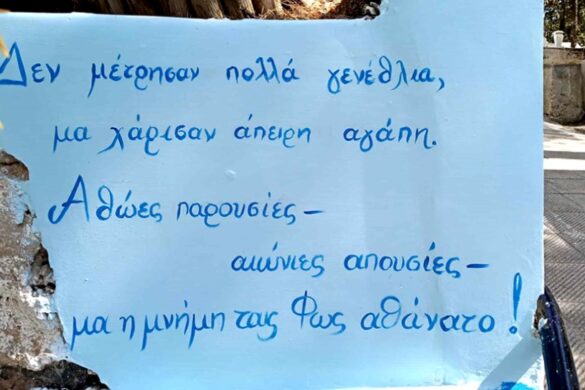 Δεν μέτρησαν πολλά γενέθλια,
μα χάρισαν άπειρη αγάπη.
Αθώες παρουσίες –
αιώνιες απουσίες –
μα η μνήμη τας Φως αθάνατο!